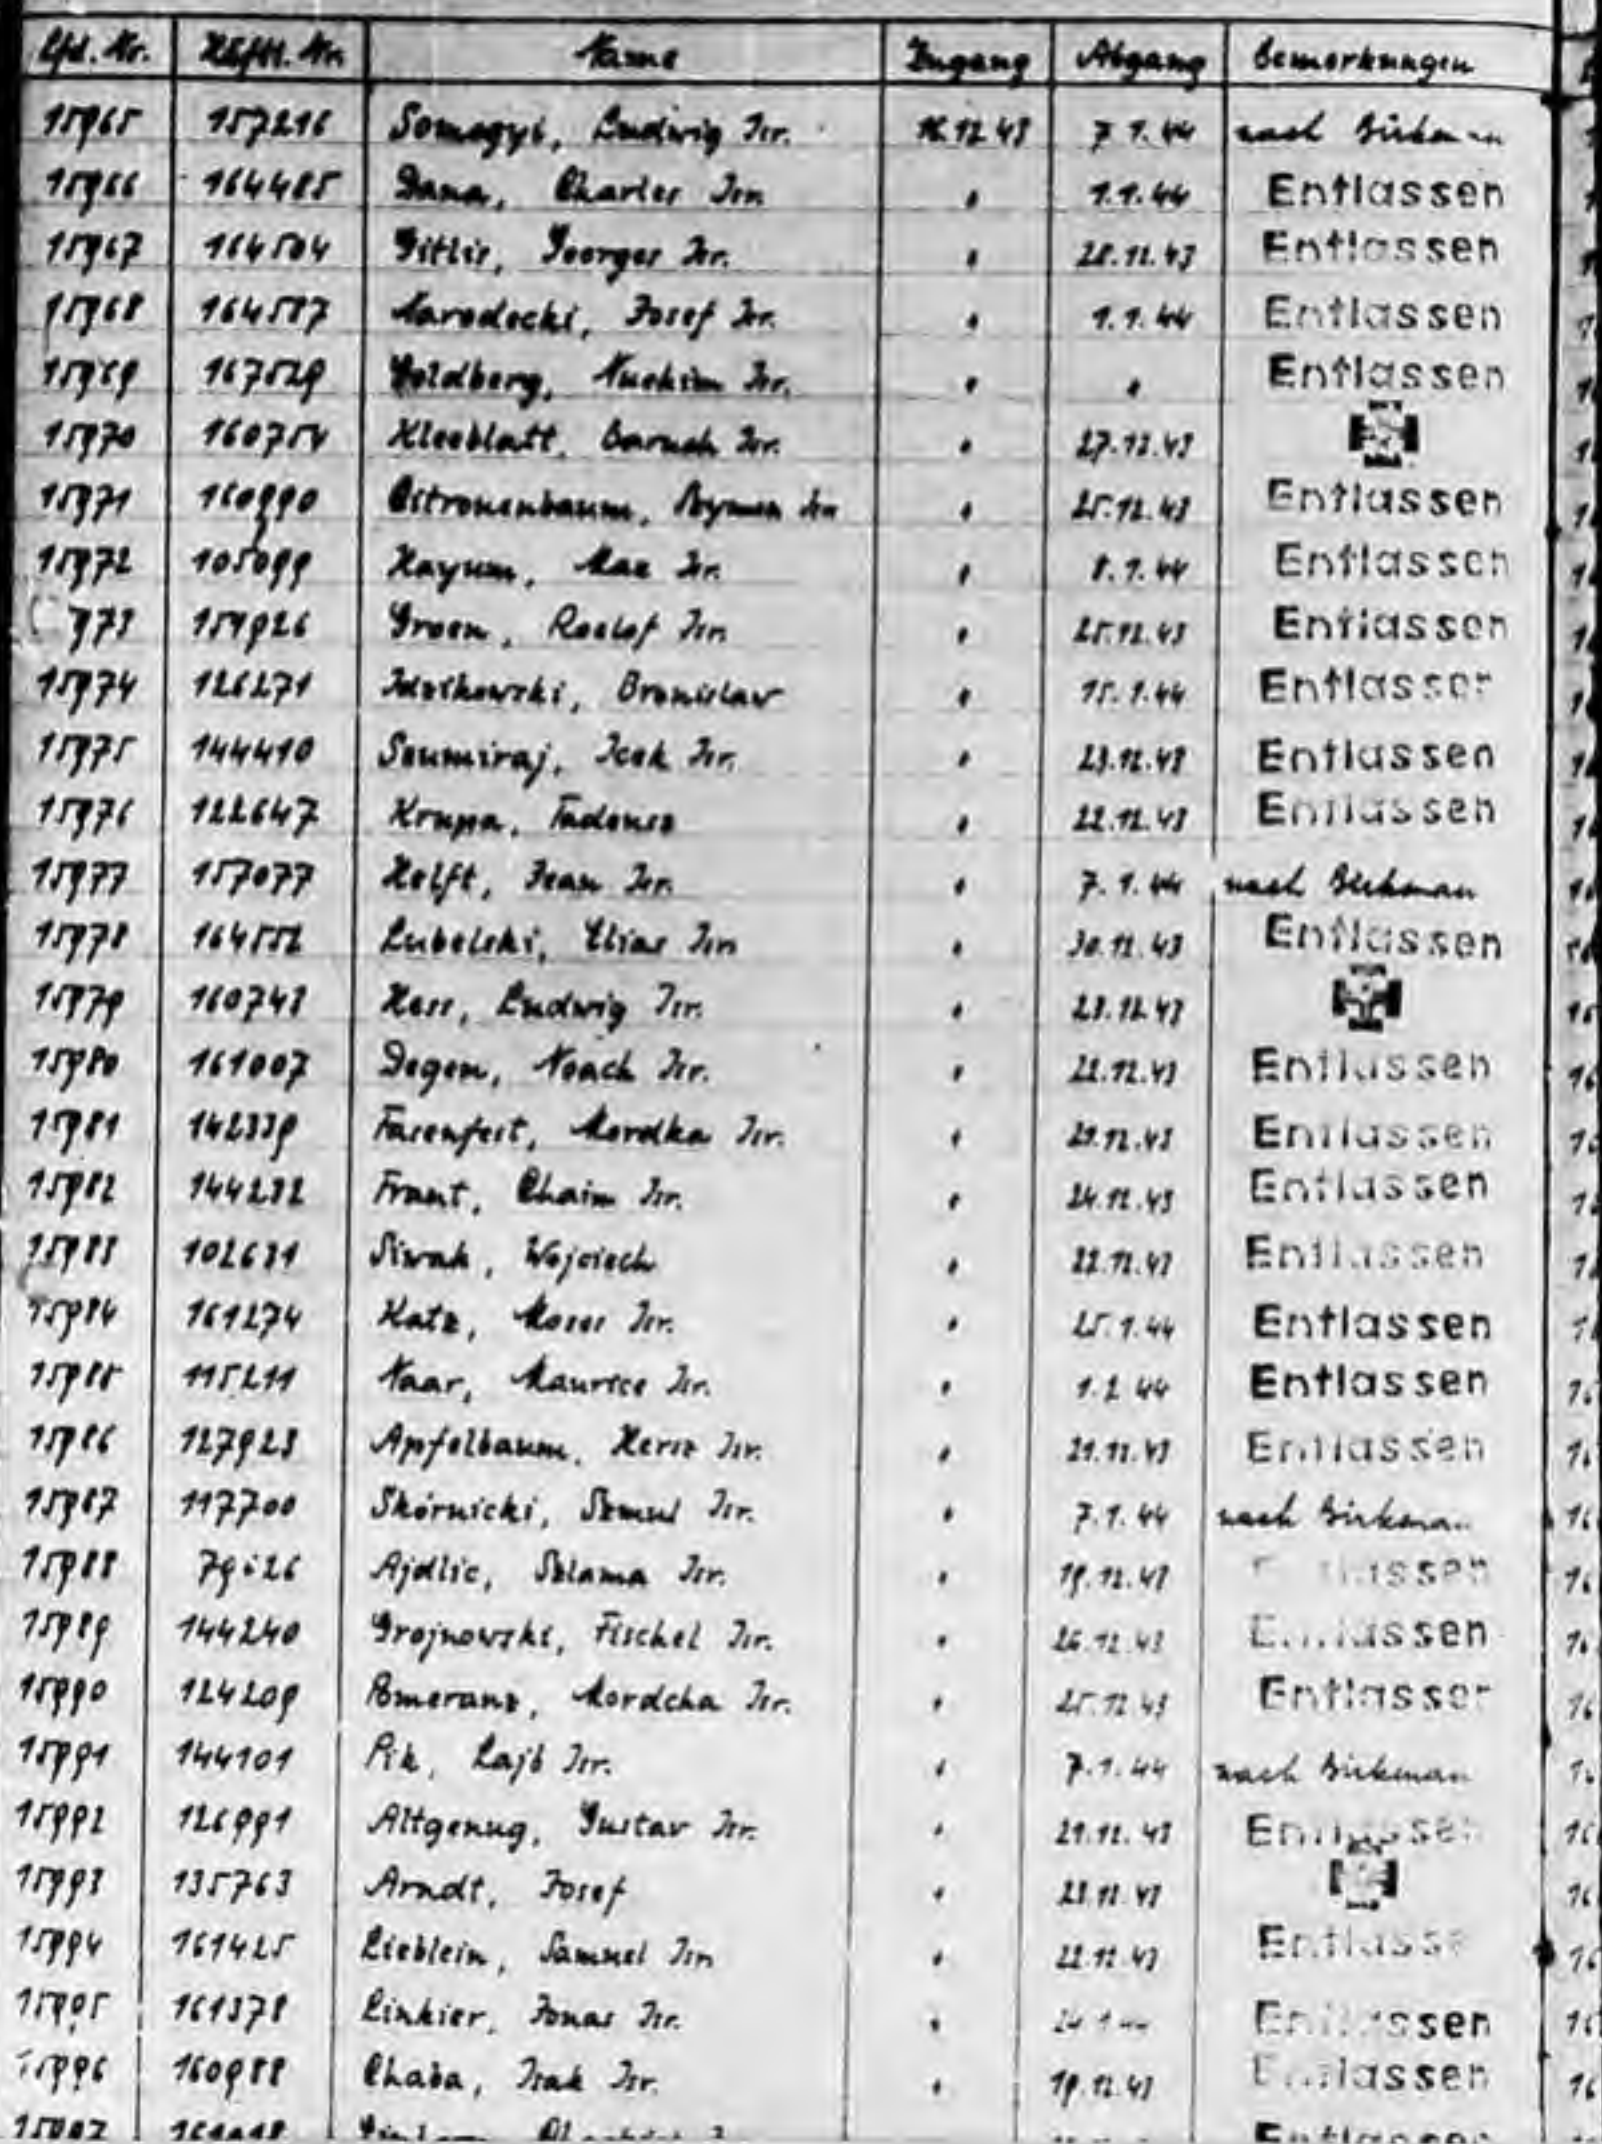 Lfd. Nr. Häftl. Nr. Name Zugang Abgang Bemerkungen
15965 157216 Somogyi, Ludwig Isr. 16.12.43 7.1.44 nach Birkenau
15966 164485 Dana, Charles Isr. " 1.1.44 Entlassen
15967 164504 Gitlis, Georges Isr. " 28.12.43 Entlassen
15968 164587 Narodecki, Josef Isr. " 1.1.44 Entlassen
15969 167529 Goldberg, Nuchim Isr. " " Entlassen
15970 160754 Kleeblatt, Baruch Isr. " 27.12.43
15971 160990 Citronenbaum, Szymon Isr. " 25.12.43 Entlassen
15972 105099 Kayum, Max Isr. " 8.1.44 Entlassen
973 159926 Groen, Roelof Isr. " 25.12.43 Entlassen
15974 126271 Bronislaw " 15.1.44 Entlassen
15975 144410 Szumiraj, Icek Isr. " 23.12.43 Entlassen
15976 122647 Krupa, Tadeusz " 22.12.43 Entlassen
15977 157077 Helft, Jean Isr. " 7.1.44 nach Birkenau
15978 164552 Lubelski, Elias Isr. " 30.12.43 Entlassen
15979 160743 Hess, Ludwig Isr. " 23.12.43
15980 161007 Degen, Noach Isr. " 22.12.43 Entlassen
15981 142339 Fasenfest, Mordka Isr. " 29.12.43 Entlassen
15982 144232 Frant, Chaim Isr. " 24.12.43 Entlassen
15983 102631 Siwak, Wojciech " 22.12.43 Entlassen
15984 161274 Katz, Moses Isr. " 25.1.44 Entlassen
15985 115211 Naar, Maurice Isr. " 1.2.44 Entlassen
15986 127923 Apfelbaum, Hersz Isr. " 21.12.43 Entlassen
15987 117700 Skórnicki, Szmul Isr. " 7.1.44 nach Birkenau
15988 Ajdlic, Szlama Isr. " 19.12.43 Entlassen
15989 144240 Grojnowski, Fischel Isr. " 26.12.43 Entlassen
15990 124209 Pomeranz, Mordcha Isr. " 25.12.43 Entlassen
15991 144101 Pik, Lajb Isr. " 7.1.44 nach Birkenau
15992 126991 Altgenug, Gustav Isr. " 21.12.43 Entlassen
15993 135763 Arndt, Josef " 23.12.43
15994 161425 Lieblein, Samuel Isr. " 22.12.43 Entlassen
15995 161378 Linkier, Jonas Isr. " Entlassen
15996 160988 Chaba, Isak Isr. " 19.12.43 Entlassen
15997 Entlassen